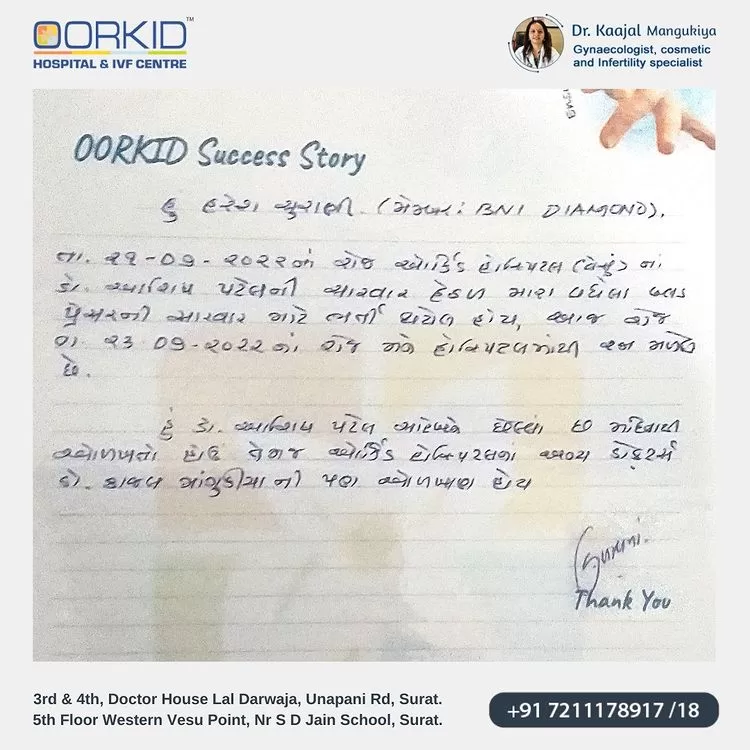 OORKID™
HOSPITAL & IVF CENTRE
Dr. Kaajal Mangukiya
Gynaecologist, cosmetic
and Infertility specialist
OORKID Success Story
હું હરેશ સુરાણી. (મેમ્બર : BNI DIAMOND).
તા. ૨૧-૦૭-૨૦૨૨નાં રોજ ઓર્કિડ હોસ્પિટલ (વેસુ) નાં
ડો. આશિષ પટેલની સારવાર હેઠળ મારા વધેલા બ્લડ
પ્રેસરની સારવાર માટે ભર્તી થયેલ હોય, આજ રોજ
તા ૨૩ ૦૭-૨૦૨૨નાં રોજ મને હોસ્પિટલમાંથી રજા મળેલ
છે.
હું ડો. આશિષ પટેલ સાહેબને છેલ્લાં છ મહિનાથી
ઓળખતો હોઉં તેમજ ઓર્કિડ હોસ્પિટલનાં અન્ય ડોક્ટર્સ
ડો. કાજલ માંગુકીયા ની પણ ઓળખાણ હોય
Thank You
3rd & 4th, Doctor House Lal Darwaja, Unapani Rd, Surat.
5th Floor Western Vesu Point, Nr S D Jain School, Surat.
+91 7211178917 /18